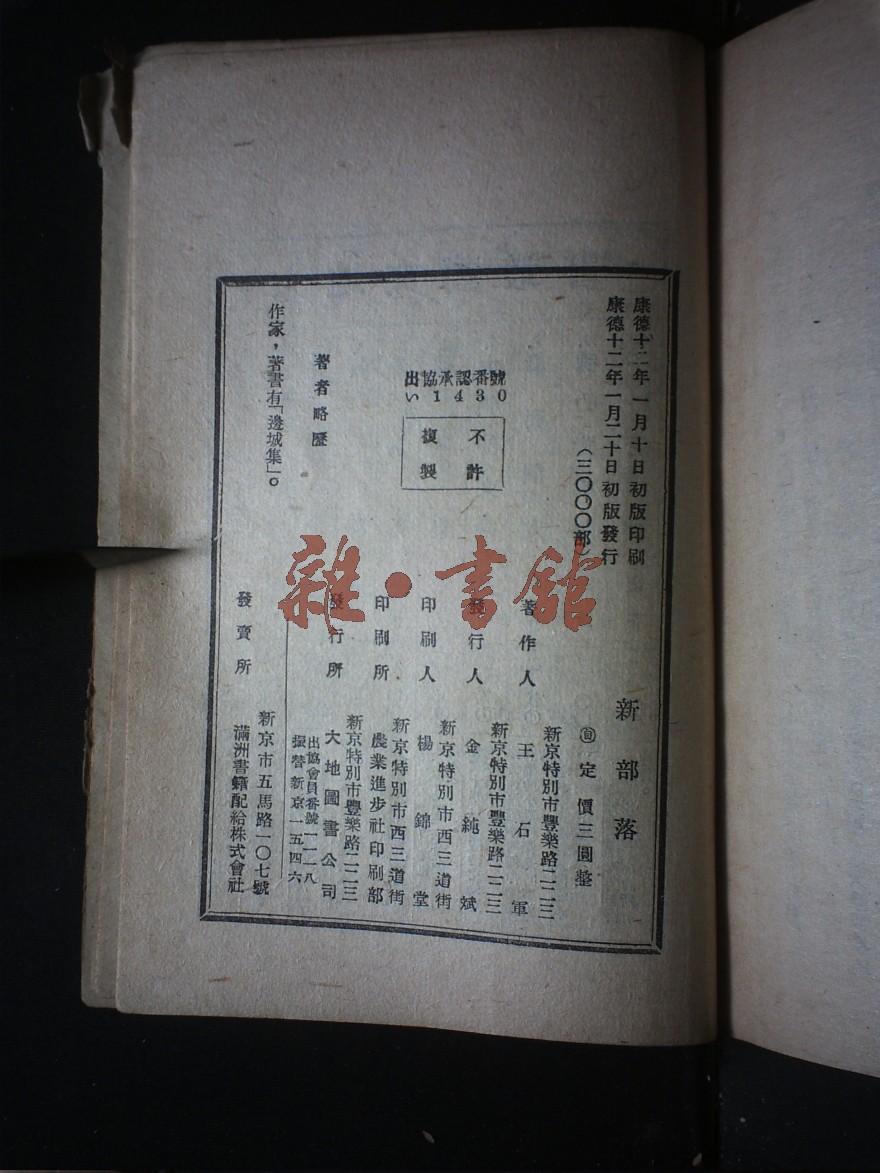 康德十二年一月十日初版印刷
康德十二年一月二十日初版發行
(三〇〇〇部)
出協承認番號
い1430
不許
複製
著者略歷
作家，著書有「邊城集」。
新部落
定價三圓整
新京特別市豐樂路二二三
著作人 王石軍
新京特別市豐樂路二二三
發行人 金純斌
新京特別市西三道街
印刷人 楊錦堂
新京特別市西三道街
印刷所 農業進步社印刷部
新京特別市豐樂路二二三
發行所 大地圖書公司
出協會員番號一一一八
振替新京一五四六
新京市五馬路一〇七號
發賣所 滿洲書籍配給株式會社
雜·書館